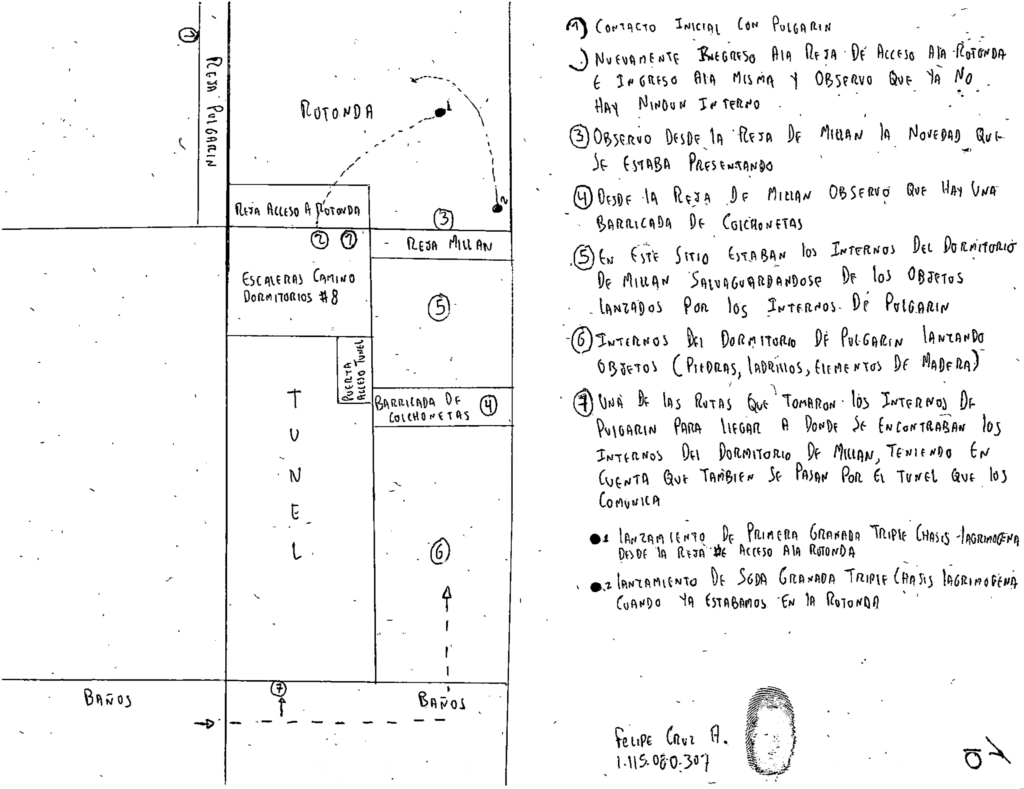 ①
REJA PULGARIN
ROTONDA
1
2
REJA ACCESO A ROTONDA
③
② ⑦
REJA MILLAN
ESCALERAS CAMINO
DORMITORIOS #8
⑤
PUERTA
ACCESO TUNEL
TUNEL
BARRICADA DE
COLCHONETAS
④
⑥
BAÑOS
⑦
BAÑOS
① CONTACTO INICIAL CON PULGARIN
NUEVAMENTE REGRESO A lA REJA DE ACCESO A lA ROTONDA
E INGRESO A lA MISMA Y OBSERVO QUE YA NO
HAY NINGUN INTERNO
③ OBSERVO DESDE lA REJA DE MILLAN lA NOVEDAD QUE
SE ESTABA PRESENTANDO
④ DESDE lA REJA DE MILLAN OBSERVO QUE HAY UNA
BARRICADA DE COLCHONETAS
⑤ EN ESTE SITIO ESTABAN loS INTERNOS DEL DORMITORIO
DE MILLAN SALVAGUARDANDOSE DE loS OBJETOS
lANZADOS POR loS INTERNOS DE PULGARIN
⑥ INTERNOS DEl DORMITORIO DE PULGARIN lANZANDO
OBJETOS (PIEDRAS, lADRILLOS, ELEMENTOS DE MADERA)
⑦ UNA DE lAS RUTAS QUE TOMARON loS INTERNOS DE
PULGARIN PARA llEGAR A DONDE SE ENCONTRABAN loS
INTERNOS DEl DORMITORIO DE MILLAN, TENIENDO EN
CUENTA QUE TAMBIEN SE PASAN POR El TUNEL QUE loS
COMUNICA
●1 lANZAMIENTO DE PRIMERA GRANADA TRIPlE CHASIS lAGRIMOGENA
DESDE lA REJA DE ACCESO A lA ROTONDA
●2 lANZAMIENTO DE SGDA GRANADA TRIPlE CHASIS lAGRIMOGENA
CUANDO YA ESTABAMOS EN lA ROTONDA
FELIPE CRUZ A.
1.115.080.307